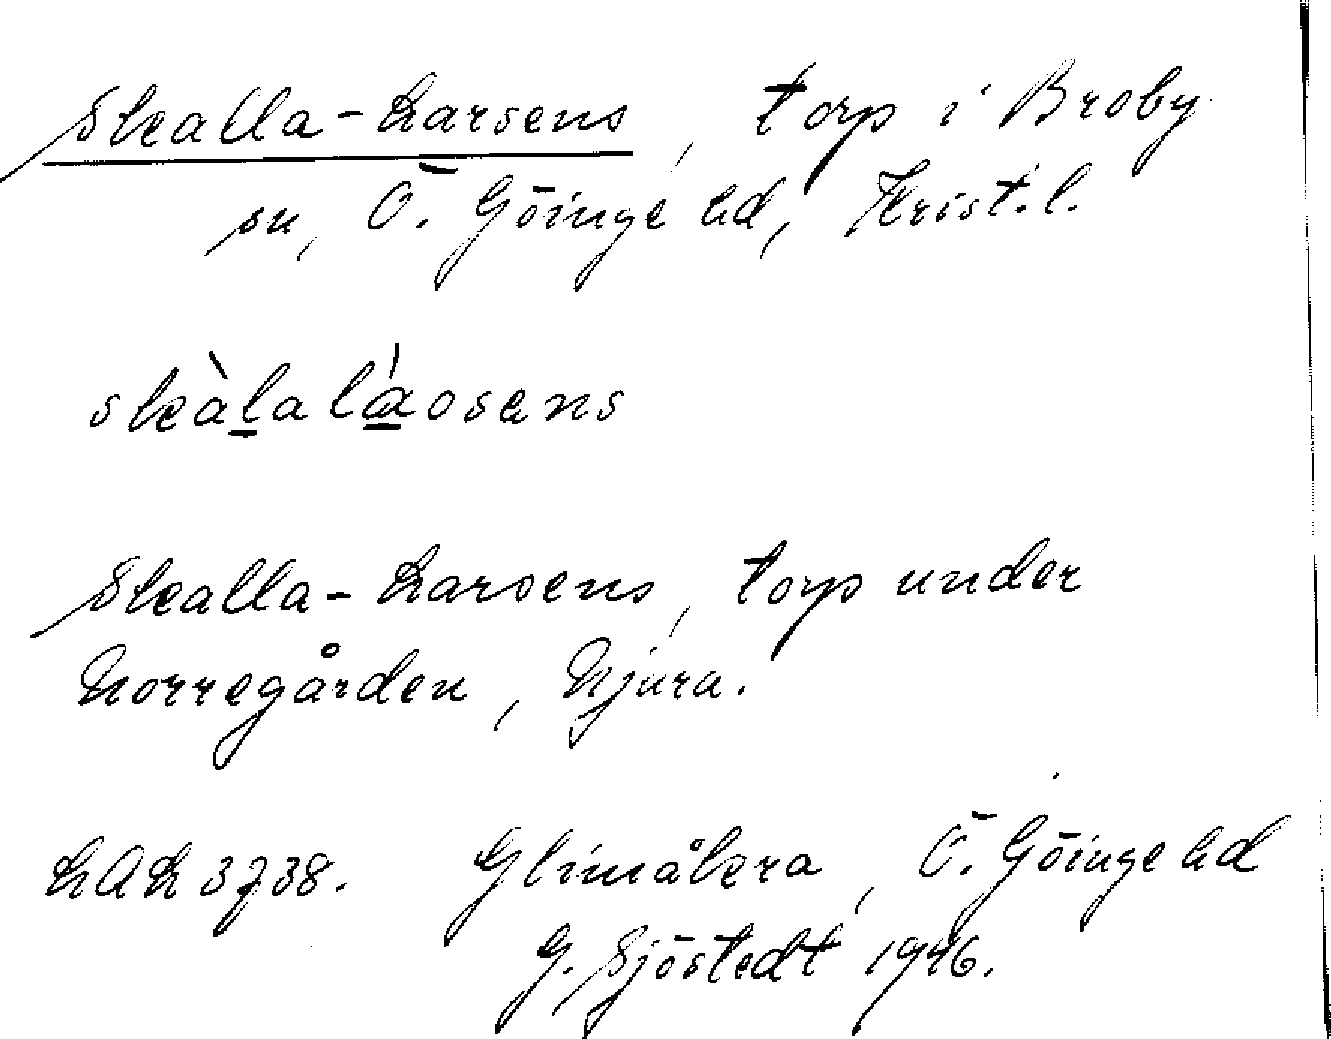 Skalla-Larsens, torp i Broby
sn, Ö. Göinge hd, Krist. l.
skàḻalá̱osens
Skalla-Larsens, torp under
Norregården, Njura.
LAL 3738. Glimåkra, Ö. Göinge hd
G. Sjöstedt 1946.